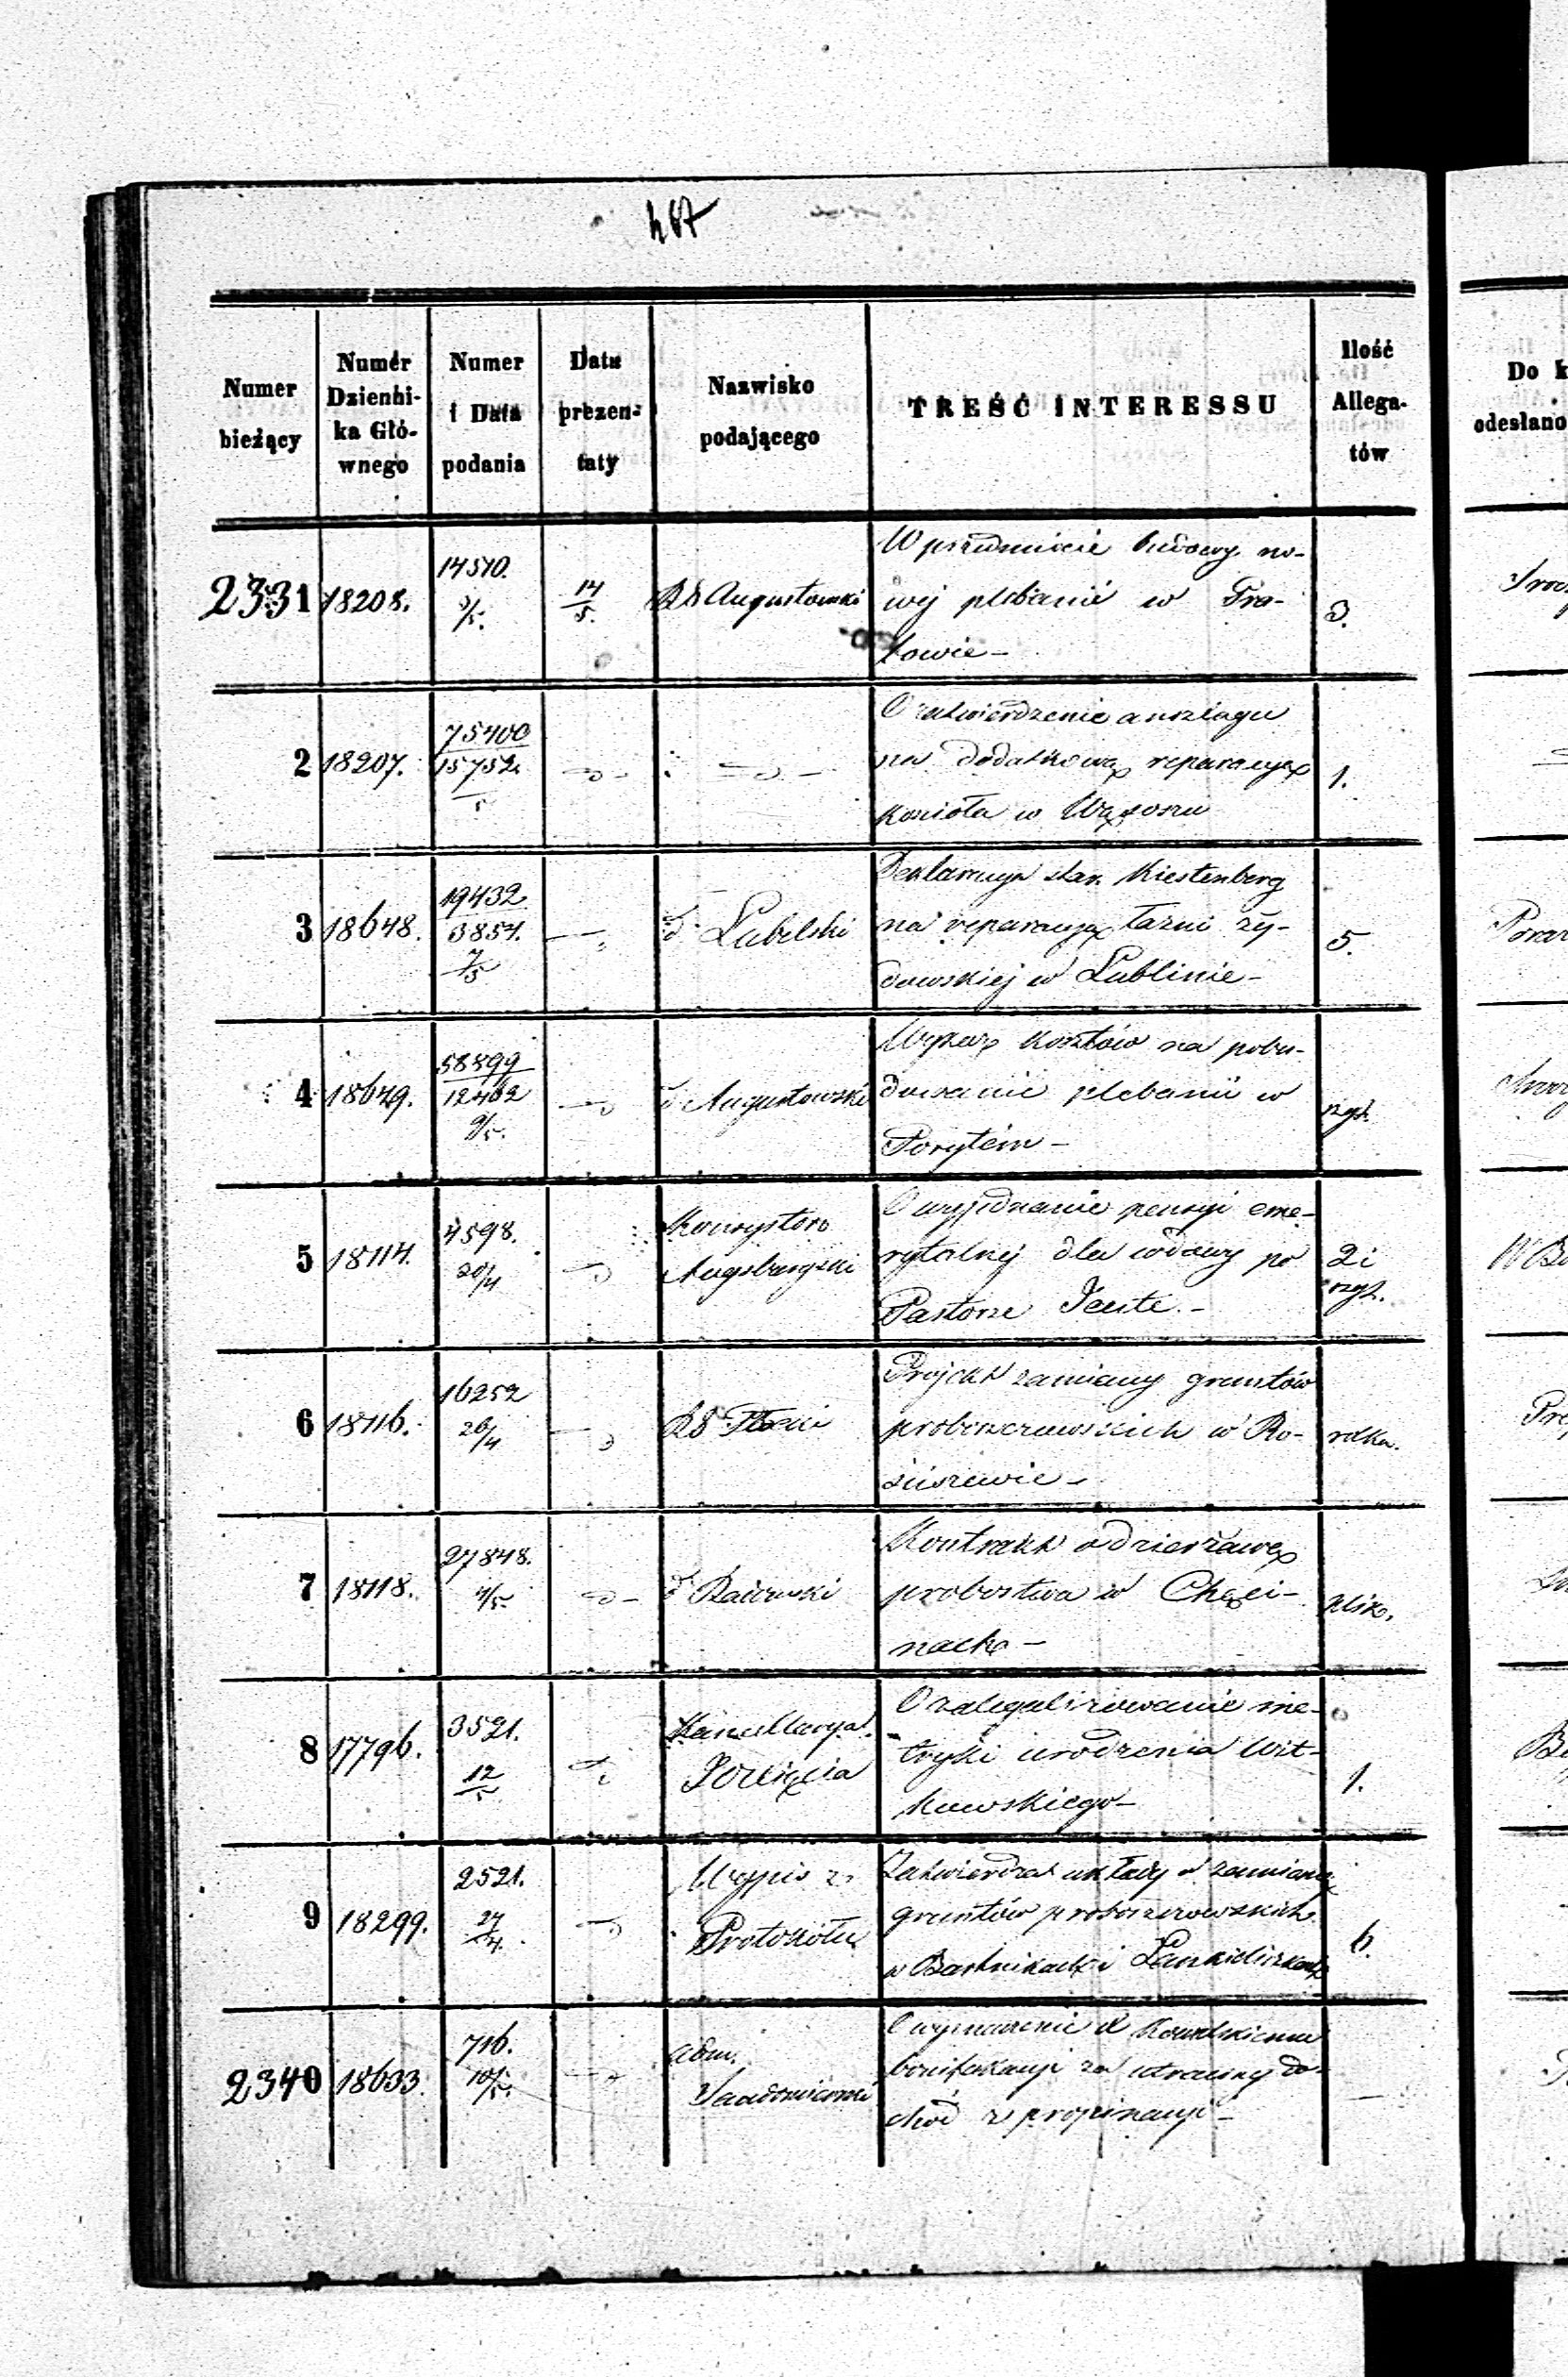 467
Numer bieżący
Numer Dzienni-ka Głó-wnego
Numer i Data podania
Data prezen-taty
Nazwisko podającego
TREŚĆ INTERESSU
Ilość Allega-tów
Do k
odesłano
2331 18208. 14510. 3/5. 14/5. RG Augustowski
W przedmiocie budowy no-
wej plebanii w Gra-
bowie –
3.
2 18207. 75400/15752 5
O zatwierdzenie anszlagu
na dodatkową reparacyą
kościoła w Wąsoszu
1.
3 18648. 19432/3854. 7/5 d Lubelski
Deklaracya star. Kiestenberg
na reparacyą łazni ży-
dowskiej w Lublinie –
5.
4 18649. 58899/12462 9/5. d Augustowski
Wykaz kosztów na pobu-
dowanie plebanii w
Porytém –
rys.
5 18114. 4598. 20/4
Konsystorz
Augsburgski
O wyjednanie pensyi eme-
rytalnej dla wdowy po
Pastorze
2 i
rys.
6 18116. 16252 26/4 RG Płocki
Projekt zamiany gruntów
proboszczowskich w Ro-
ściszewie –
7 18118. 27848. 4/5 d Radomski
Kontrakt o dzierżawę
probostwa w Chęci-
nach –
plik.
8 17796. 3521. 12/5
Kancellarya
Xcia
O zalegalizowanie me-
tryki urodzenia Wit-
kowskiego –
1.
9 18299. 2521. 27/4.
Wypis z
Protokółu
Zatwierdza układy o zamianę
gruntów proboszczowskich
w Bartnikach i
6.
2340 18633. 716. 10/5.
Adm.
Sandomierski
O wyznaczenie X Kowalskiemu
bonifikacyi za utracony do-
chód z propinacyi –
–